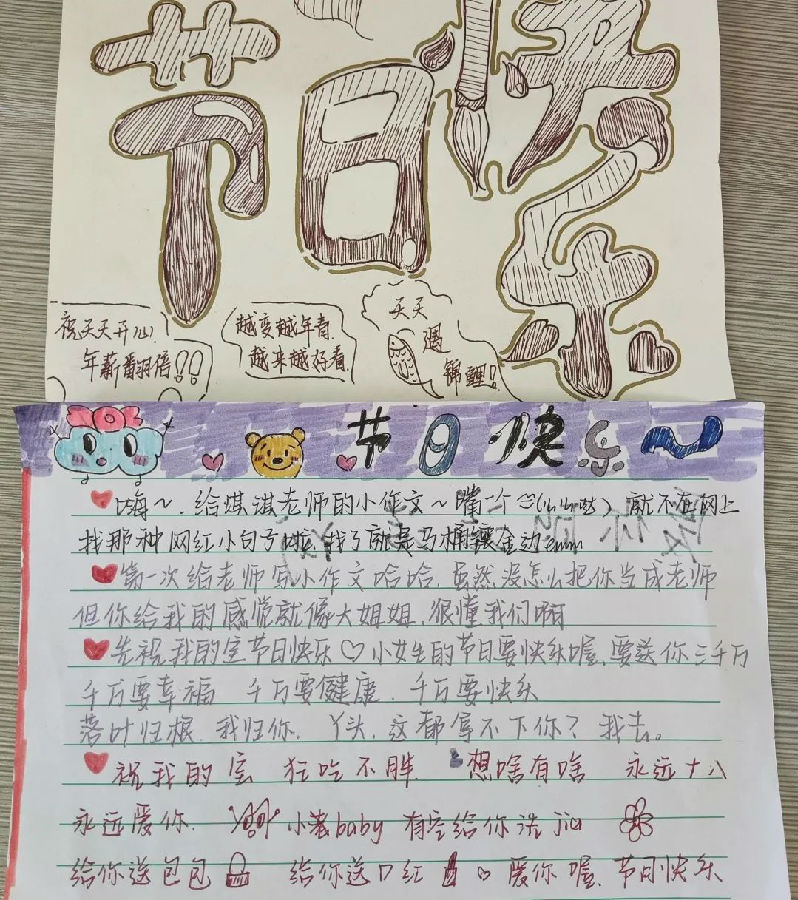 节日快乐
天天开心
年薪翻倍!!
越变越年青
越来越好看
天天
遇
锦鲤!
节日快乐~
嗨~. 给媒淇老师的小作文~嘴一个 就不在网上
找那种网红小句子啦 找了就是马桶镶金边
第一次给老师写小作文哈哈, 虽然没怎么把你当成老师
但你给我的感觉就像大姐姐, 很懂我们啊
先祝我的宝节日快乐♡小女生的节日要快乐喔, 要送你三千万
千万要幸福 千万要健康. 千万要快乐
落叶归根, 我归你. 丫头, 这都拿不下你? 我去。
祝我的宝 狂吃不胖 想啥有啥 永远十八
永远爱你. 小裙baby 有空给你洗jio
给你送包包 给你送口红 ♡爱你喔. 节日快乐